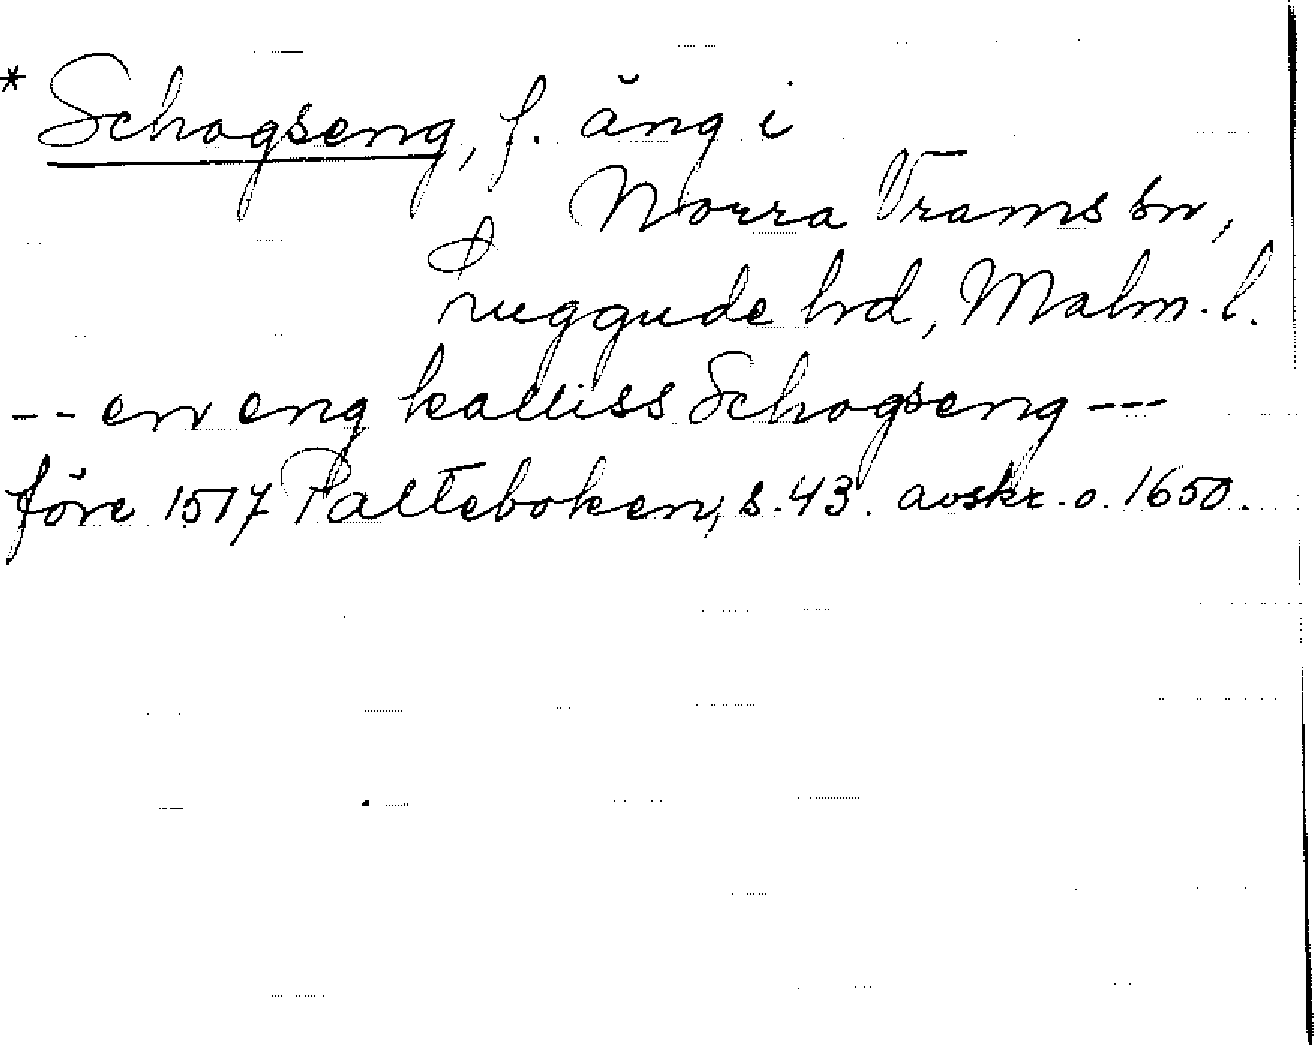 * Schogseng, f. äng i
Norra Vrams sn,
Luggude hd, Malm. l.
-- en eng kalliss Schogseng ---
före 1517 Palteboken, s. 43. avskr. o. 1650.